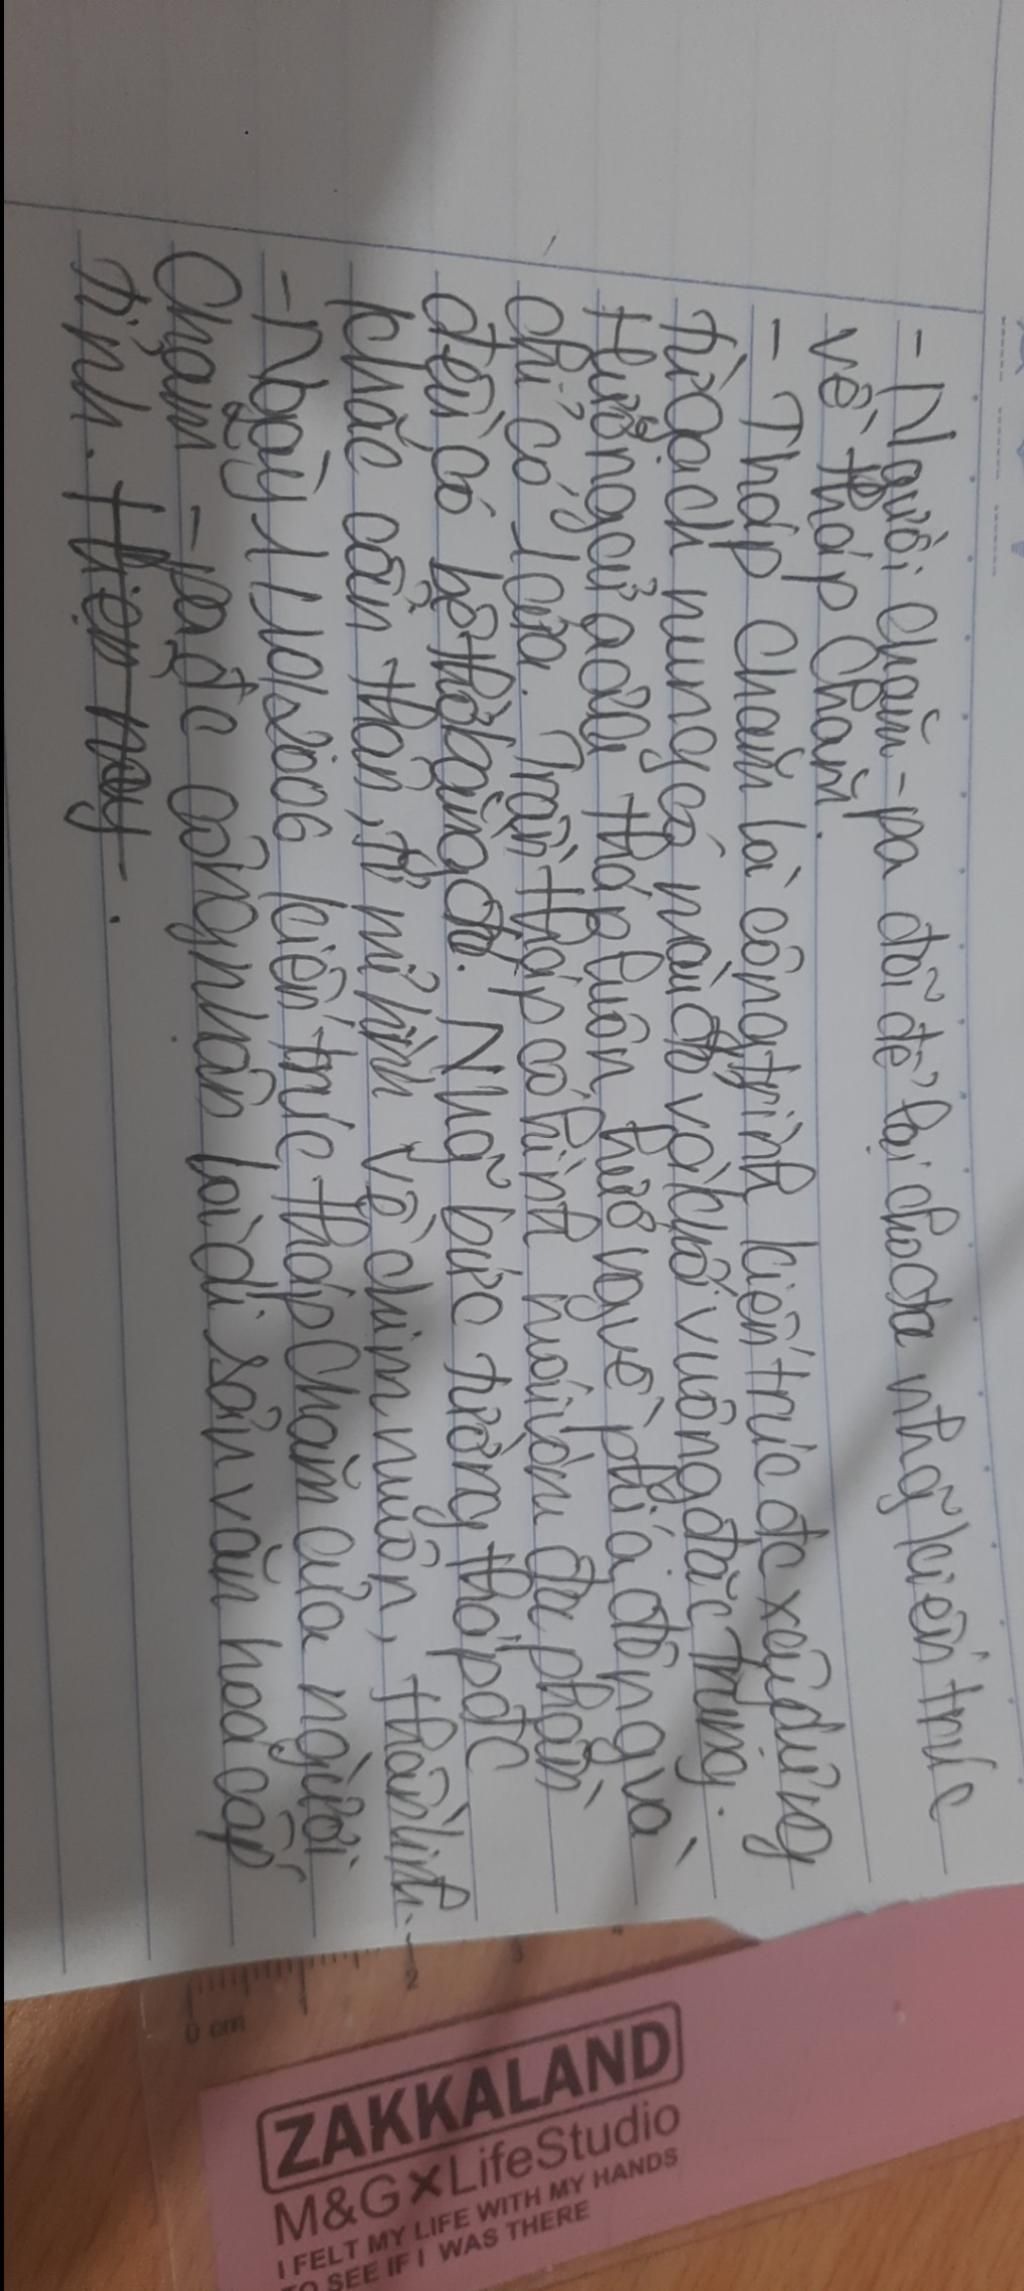 - Người Chăm-pa đã để lại cho cta nhg~ kiến trúc
về tháp Chăm.
- Tháp Chăm là công trình kiến trúc đc xây dựng
từ gạch nung có màu đỏ và khối vuông đặc trưng.
Hướng cửa của tháp luôn hướng về phía đông và
chỉ có 1 cửa. Trần tháp có hình mái vòm đa phần
đều có bệ thờ bằng đá. Nhg~ bức tường tháp đc
khắc cẩn thận, tỉ mỉ hình về chim muôn, thần linh.
- Ngày 1/10/2006 kiến trúc tháp Chăm của người
Chăm - pa đc công nhận là di sản văn hoá cấp
tỉnh. Hiện nay.
0 cm
2
3
ZAKKALAND
M&G×LifeStudio
I FELT MY LIFE WITH MY HANDS
TO SEE IF I WAS THERE